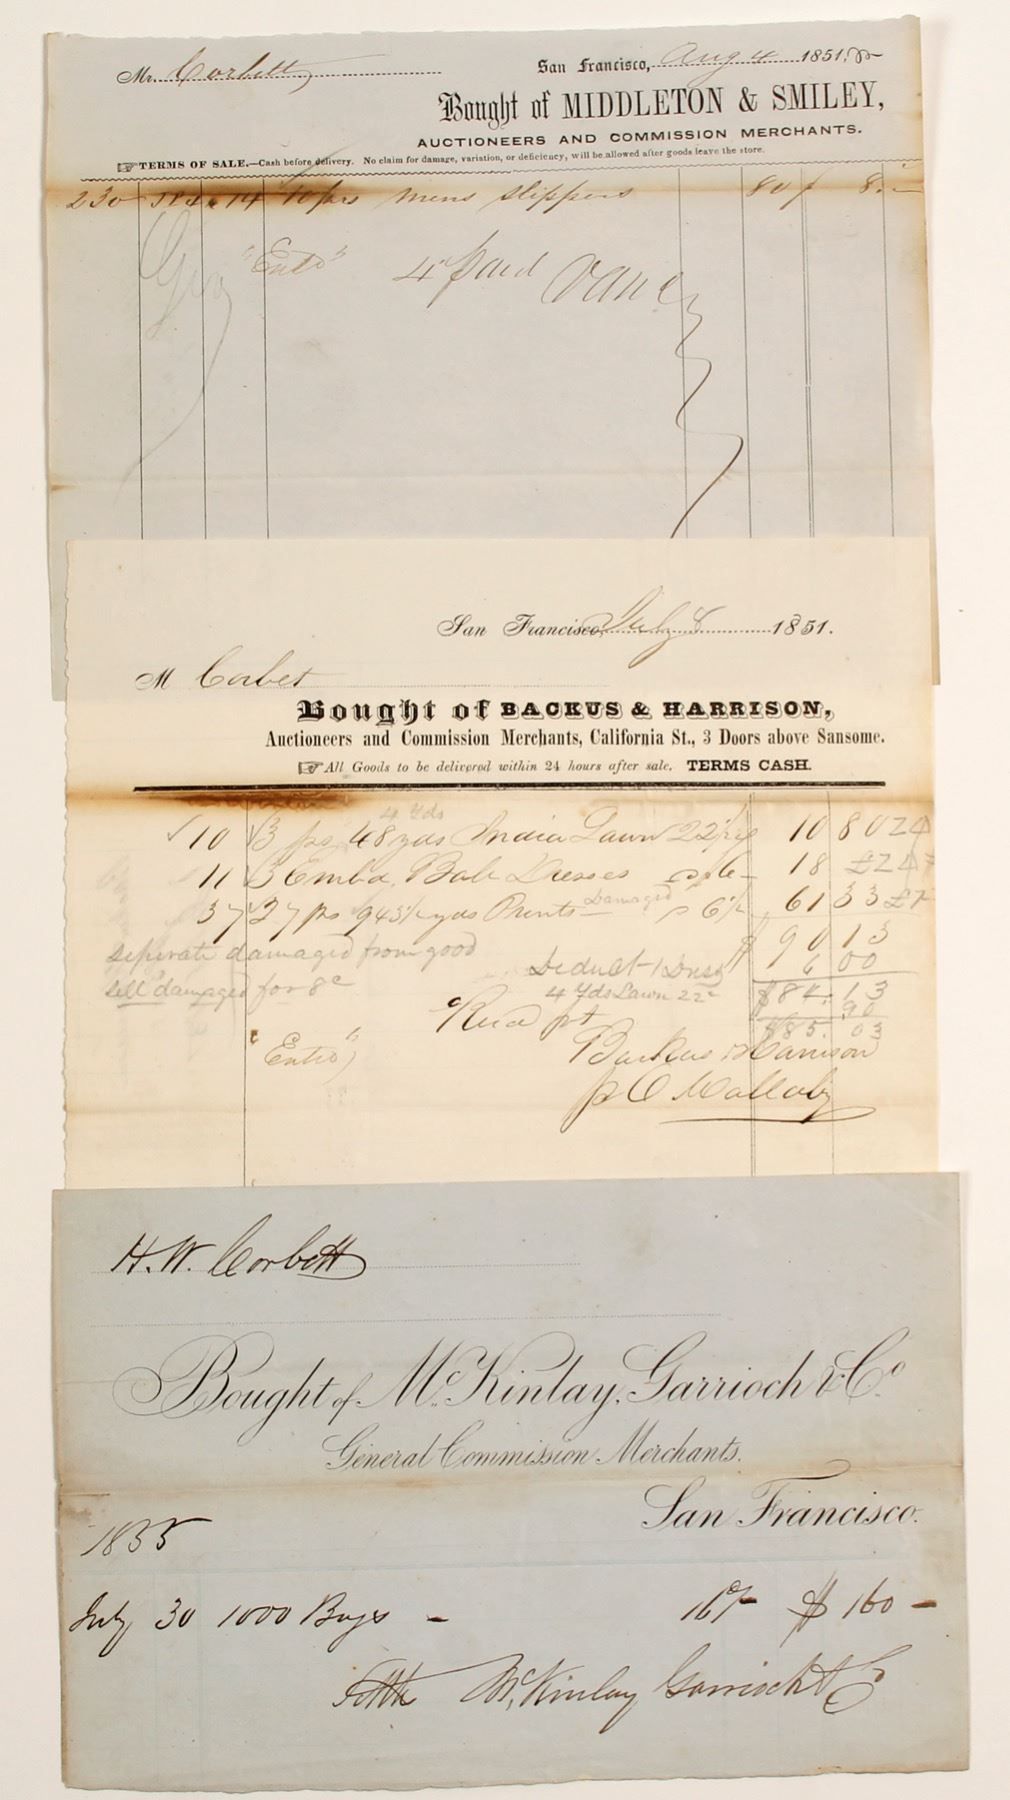 Mr. Corbett, San Francisco, Aug 4 1851.
Bought of MIDDLETON & SMILEY,
AUCTIONEERS AND COMMISSION MERCHANTS.
TERMS OF SALE.—Cash before delivery. No claim for damage, variation, or deficiency, will be allowed after goods leave the store.
230 14 10 prs mens slippers 80 8.—
"Entd" paid
San Francisco, July 8 1851.
M Corbet
Bought of BACKUS & HARRISON,
Auctioneers and Commission Merchants, California St., 3 Doors above Sansome.
All Goods to be delivered within 24 hours after sale. TERMS CASH.
4 Yds
10 3 ps 48 yds India Lawn 22½ 10 80
11 3 Embd. Dresses 6— 18
Damaged
37 37 ps 943½ yds Prints 6½ 61 33
seperate damaged from good $ 90 13
Deduct 1 Dress 6 00
sell damaged for 8c 4 Yds Lawn 22c $84.13
90
Recd pt $85.03
"Entd" Backus & Harrison
H. W. Corbett
Bought of McKinlay, Garrioch & Co.
General Commission Merchants.
San Francisco.
1855
July 30 1000 Bags — 16 $ 160 —
McKinlay Garrioch & Co